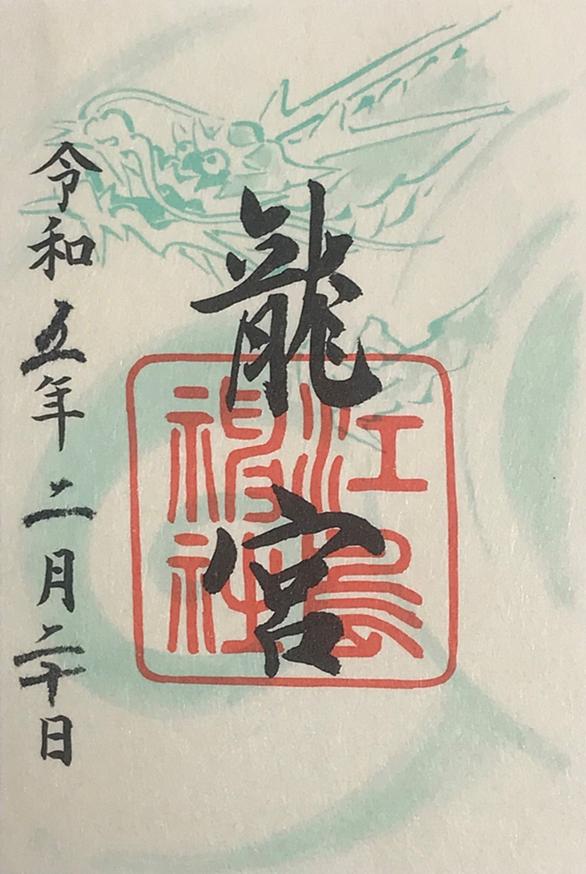 龍宮
江島
神社
令和五年二月二十日